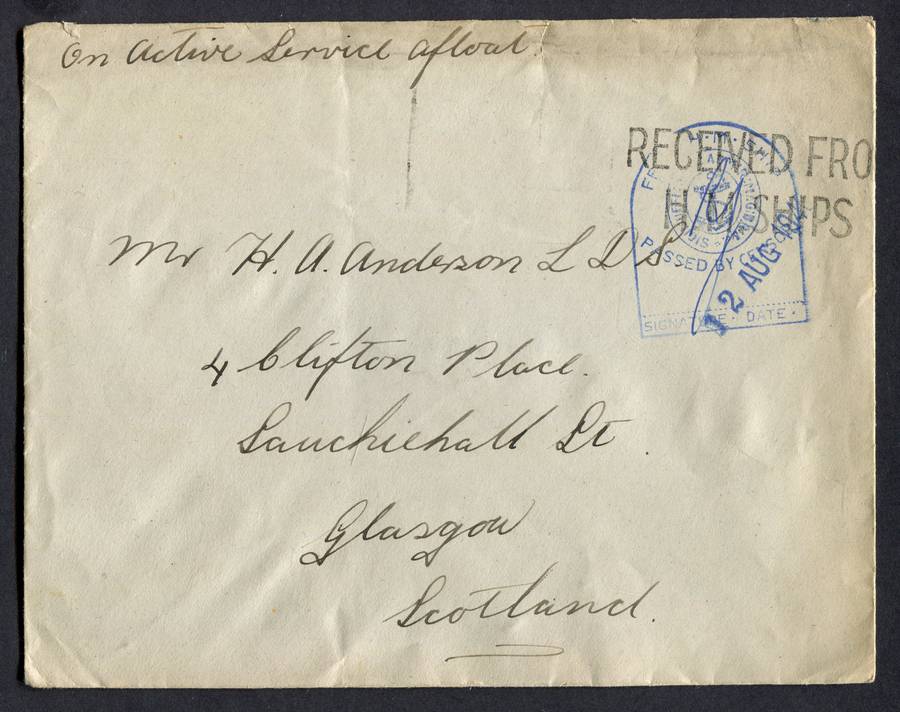 On Active Service afloat.
RECEIVED FRO
H M SHIPS
H.M. SHIP
PASSED BY CENSOR
12 AUG 194
SIGNATURE · DATE ·
Mr H. A. Anderson L D S
4 Clifton Place.
Sauchiehall St.
Glasgow
Scotland.